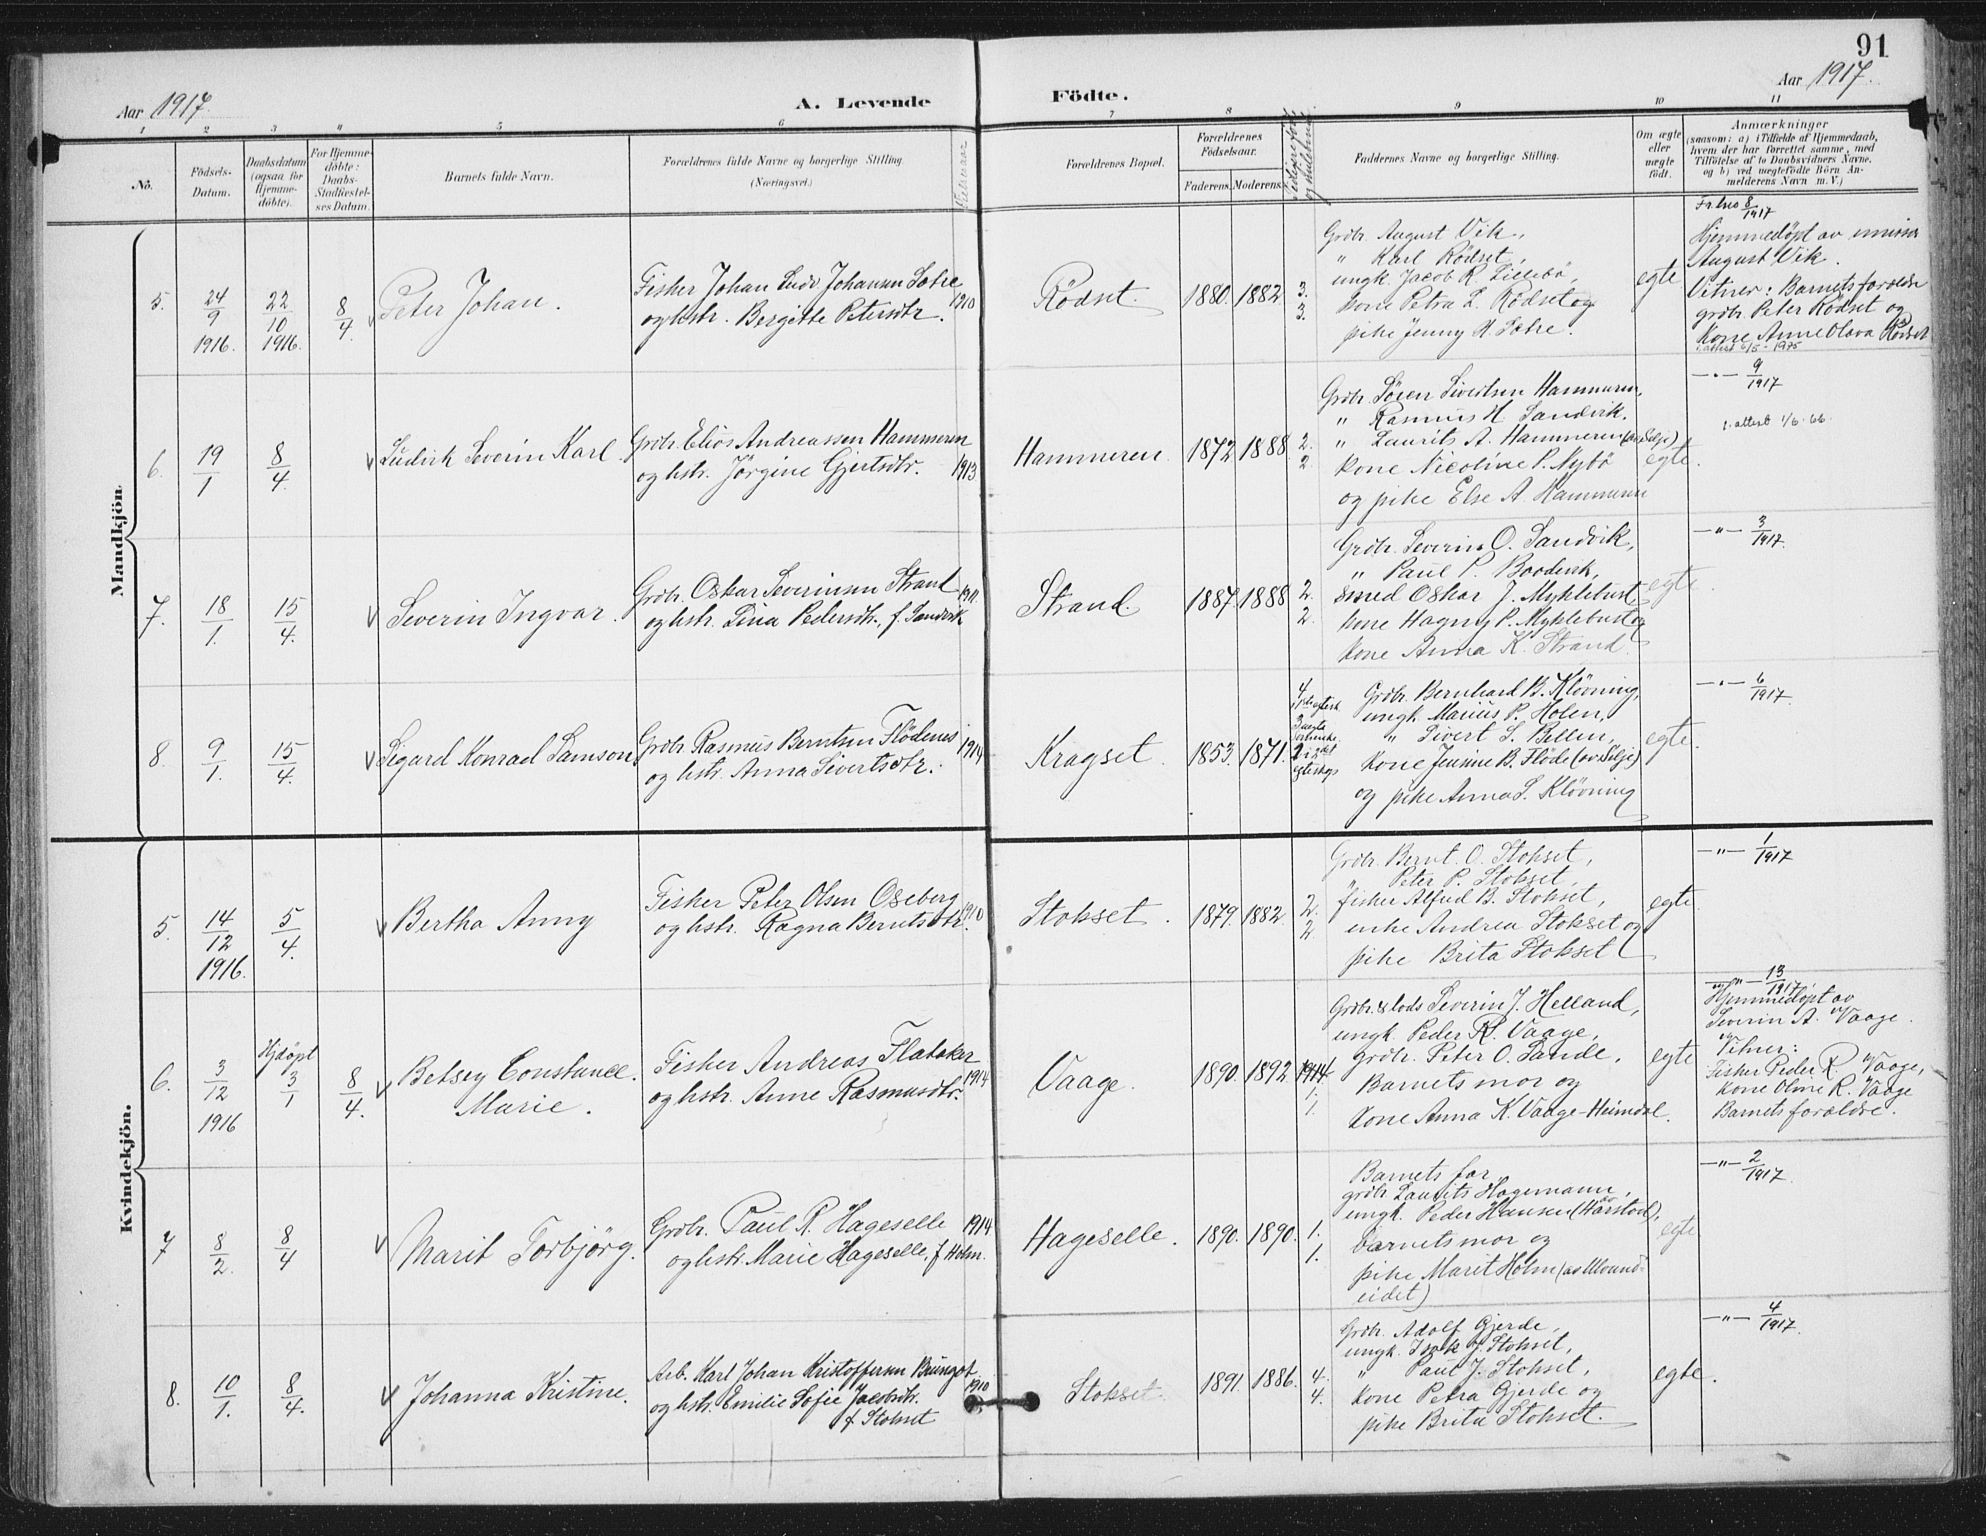 91
Aar 1917
A. Levende
Födte.
Aar 1917.
1 2 3 4 5 6 7 8 9 10 11
No.
Födsels-
Datum.
Daabsdatum
(ogsaa for
Hjemme-
döbte).
For Hjemme-
döbte:
Daabs-
Stadfæstel-
ses Datum.
Barnets fulde Navn.
Forældrenes fulde Navne og borgerlige Stilling
(Næringsvei.)
Forældrenes Bopæl.
Forældrenes
Födselsaar.
Faderens. Moderens.
Faddernes Navne og borgerlige Stilling.
Om ægte
eller
uægte
födt.
Anmærkninger
(saasom: a) i Tilfælde af Hjemmedaab,
hvem der har forrettet samme, med
Tilföielse af to Daabsvidners Navne.
og b) ved uægtefödte Börn An-
melderens Navn m. V.)
Mandkjön.
5. 24/9 1916. 22/10 1916. 8/4.
Peter Johan.
Fisher Johan Ludv Johansen Sætre
og hstr. Bergitte Petersdtr. 1910
Rödset. 1880. 1882. 3. 3.
Grdbr. August Vik,
" Karl Rödset,
ungk. Jacob R. Lillebö,
kone Petra L. Rödset og
pike Jenny H. Sætre.
egte
8/1917
Hjemmedöpt av
August Vik.
Vitner: Barnets forældre
grdbr. Peter Rödset og
kone Anne Olava Rödset
6. 19/1 8/4.
Ludvik Severin Karl
Grdbr. Elias Andreassen Hammeren
og hstr. Jörgine Gjertsdtr. 1913
Hammeren 1872 1888 2. 2
Grdbr. Sören Sivertsen Hammeren,
" Rasmus H. Sandvik.
" Laurits A. Hammeren (av Selje)
kone Nicoline P. Nybö
og pike Else A. Hammeren
egte.
— " — 9/1917
1. attest 1/6. 66.
7. 18/1. 15/4.
Severin Ingvar.
Grdbr. Oskar Severinsen Strand
og hstr. Lina Pedersdtr., f. Sandvik 1911.
Strand. 1887. 1888 2. 2.
Grdbr. Severin O. Sandvik,
" Paul P.
smed Oskar J. Myklebust
kone Hagny P. Myklebust og
kone Anna K. Strand.
egte.
— " — 3/1917.
8. 9/1. 15/4.
Sigard Konrad Samson
Grdbr. Rasmus Berntsen Flödenes
og hstr. Anna Sivertsdtr. 1914
Kragset. 1853. 1871.
Grdbr. Bernhard B. Klövning,
ungk. Marius P. Holen,
" Sivert S.
kone Jenine B. Flöde (av Selje)
og pike Anna S. Klövning
egte.
— " — 6/1917
Kvindekjön.
5. 14/12 1916. 5/4.
Bertha Anny
Fisher Peter Olsen Oseberg
og hstr. Ragna Berntsdtr. 1910
Stokset. 1879. 1882. 2. 2
Grdbr. Bernt. O. Stokset,
" Peter P. Stokset,
fisher Alfred B. Stokset,
enke Andrea Stokset og
pike Brita Stokset
egte
— " — 1/1917
6. 3/12 1916 Hjdöpt 3/1 8/4.
Betsey Constance
Marie.
Fisher Andreas Flataker
og hstr. Anne Rasmusdtr. 1914
Vaage. 1890. 1892. 1914. 1. 1.
Grdbr. & lods Severin J. Helland,
ungk. Peder R. Vaage,
grdbr. Peter O. Sande,
Barnets mor og
kone Anna K. Vaage-Heimdal.
egte
— " — 13/1917
Hjemmedöpt av
Severin A. Vaage.
Vitner:
Fisher Peder R. Vaage,
kone Oline R. Vaage
Barnets forældre.
7 8/2. 8/4
Marit Torbjörg.
Grdbr. Paul R. Hageselle 1914
og hstr. Marie Hageselle, f Holm.
Hageselle. 1890. 1890. 1. 1.
Barnets far,
grdbr. Laurits Hagemann,
ungk. Peder Hansen (av Harstad),
barnets mor og
pike Marit Holm (av Ulvund-
eidet)
egte
— " — 2/1917
8. 10/1. 8/4.
Johanna Kristine.
Arb. Karl Johan Kristoffersen Brungot
og hstr. Emilie Sofie Jacobsdtr.
f. Stokset 1910
Stokset. 1891. 1886. 4. 4.
Grdbr. Adolf Gjerde,
ungk. Isak J. Stokset,
" Paul J. Stokset,
kone Petra Gjerde og
pike Brita Stokset.
egte.
— " — 4/1917.